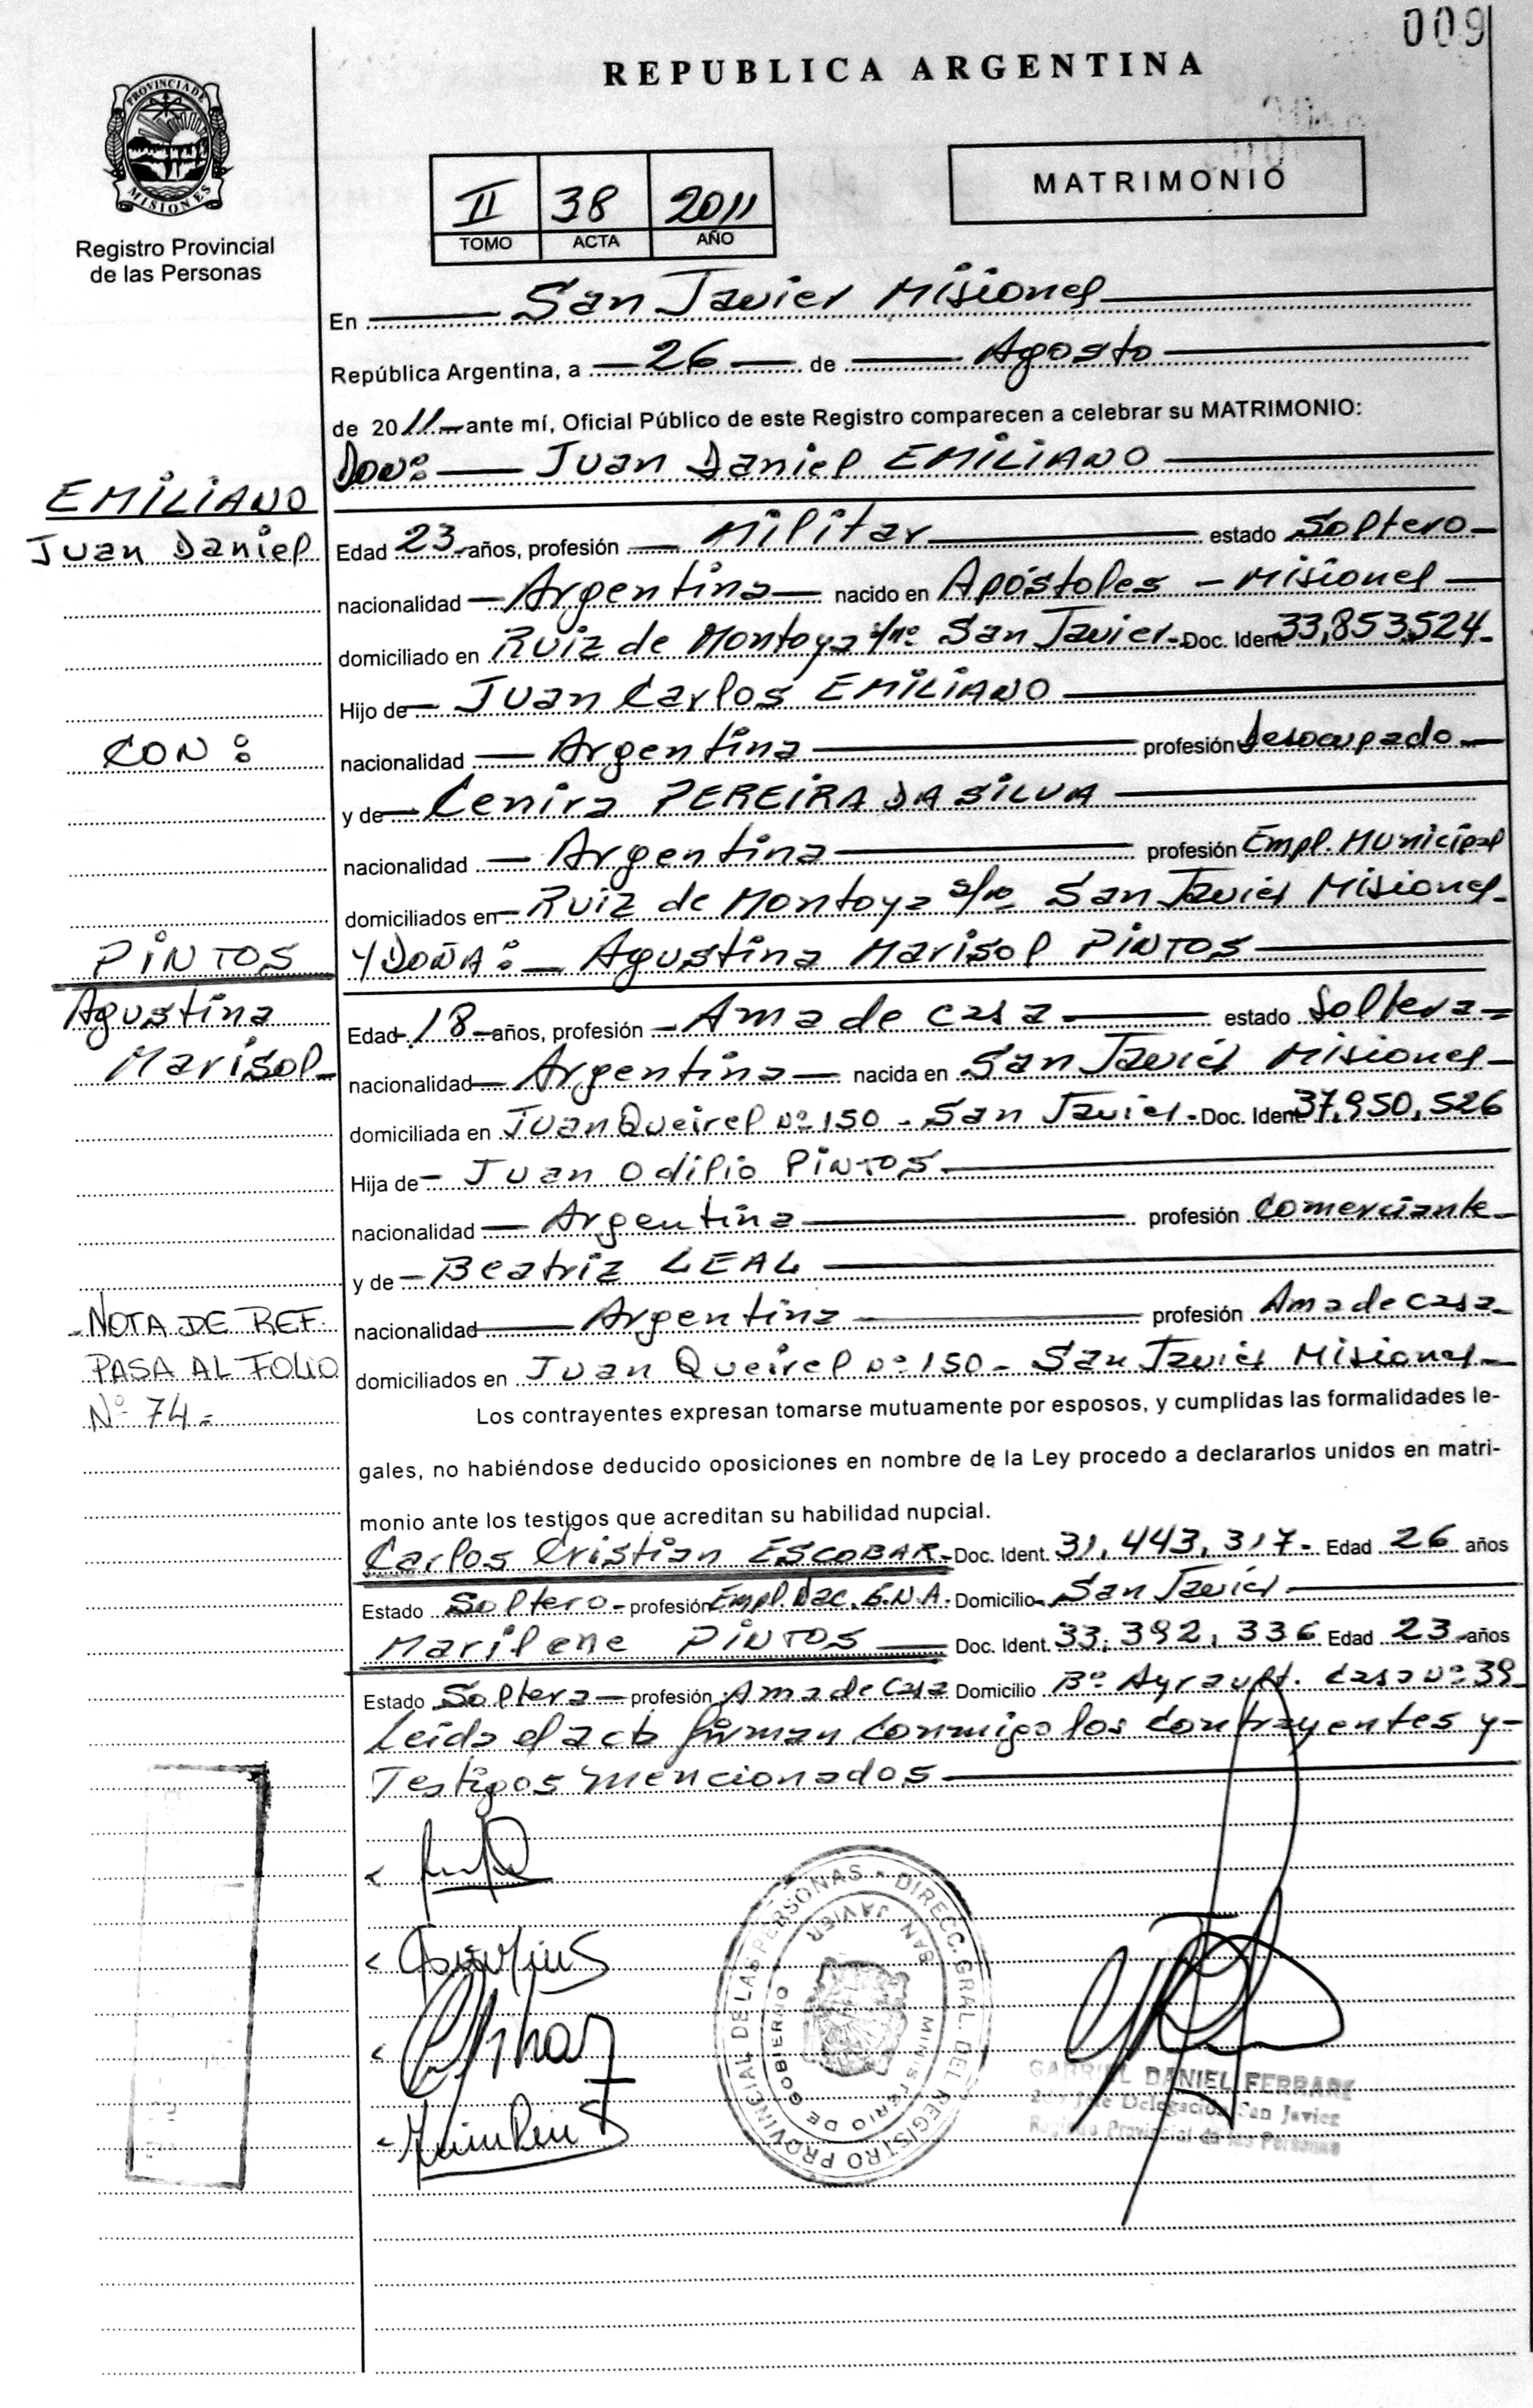 009
REPUBLICA ARGENTINA
PROVINCIA DE
MISIONES
Registro Provincial
de las Personas
II 38 2011
TOMO ACTA AÑO
MATRIMONIO
En San Javier Misiones
República Argentina, a 26 de Agosto
de 2011 ante mí, Oficial Público de este Registro comparecen a celebrar su MATRIMONIO:
DON: Juan Daniel EMILIANO
EMILIANO
Juan Daniel
Edad 23 años, profesión Militar estado Soltero
nacionalidad Argentina nacido en Apóstoles - Misiones
domiciliado en Ruiz de Montoya s/nº San Javier - Doc. Ident. 33.853.524
Hijo de Juan Carlos EMILIANO
CON:
nacionalidad Argentina profesión desocupado
y de Cenira PEREIRA DA SILVA
nacionalidad Argentina profesión Empl. Municipal
domiciliados en Ruiz de Montoya s/nº San Javier Misiones
PINTOS
Y DOÑA: Agustina Marisol PINTOS
Agustina
Marisol
Edad 18 años, profesión Ama de casa estado Soltera
nacionalidad Argentina nacida en San Javier Misiones
domiciliada en Juan Queirel Nº 150 - San Javier - Doc. Ident. 37.950.526
Hija de Juan Odilio PINTOS
nacionalidad Argentina profesión comerciante
y de Beatriz LEAL
NOTA DE REF.
PASA AL FOLIO
Nº 74 -
nacionalidad Argentina profesión Ama de casa
domiciliados en Juan Queirel Nº 150 - San Javier Misiones
Los contrayentes expresan tomarse mutuamente por esposos, y cumplidas las formalidades le-
gales, no habiéndose deducido oposiciones en nombre de la Ley procedo a declararlos unidos en matri-
monio ante los testigos que acreditan su habilidad nupcial.
Carlos Cristian ESCOBAR - Doc. Ident. 31.443.317 - Edad 26 años
Estado Soltero - profesión Empl. Nac. G.N.A. Domicilio San Javier
Marilene PINTOS Doc. Ident. 33.392.336 Edad 23 años
Estado Soltera - profesión Ama de casa Domicilio Bº Ayrault. Casa Nº 39
Leida el acta firman conmigo los contrayentes y
Testigos mencionados
DIRECC. GRAL. DEL REGISTRO PROVINCIAL DE LAS PERSONAS
MINISTERIO DE GOBIERNO
SAN JAVIER
GABRIEL DANIEL FERRARE
Jefe Delegación San Javier
Registro Provincial de las Personas